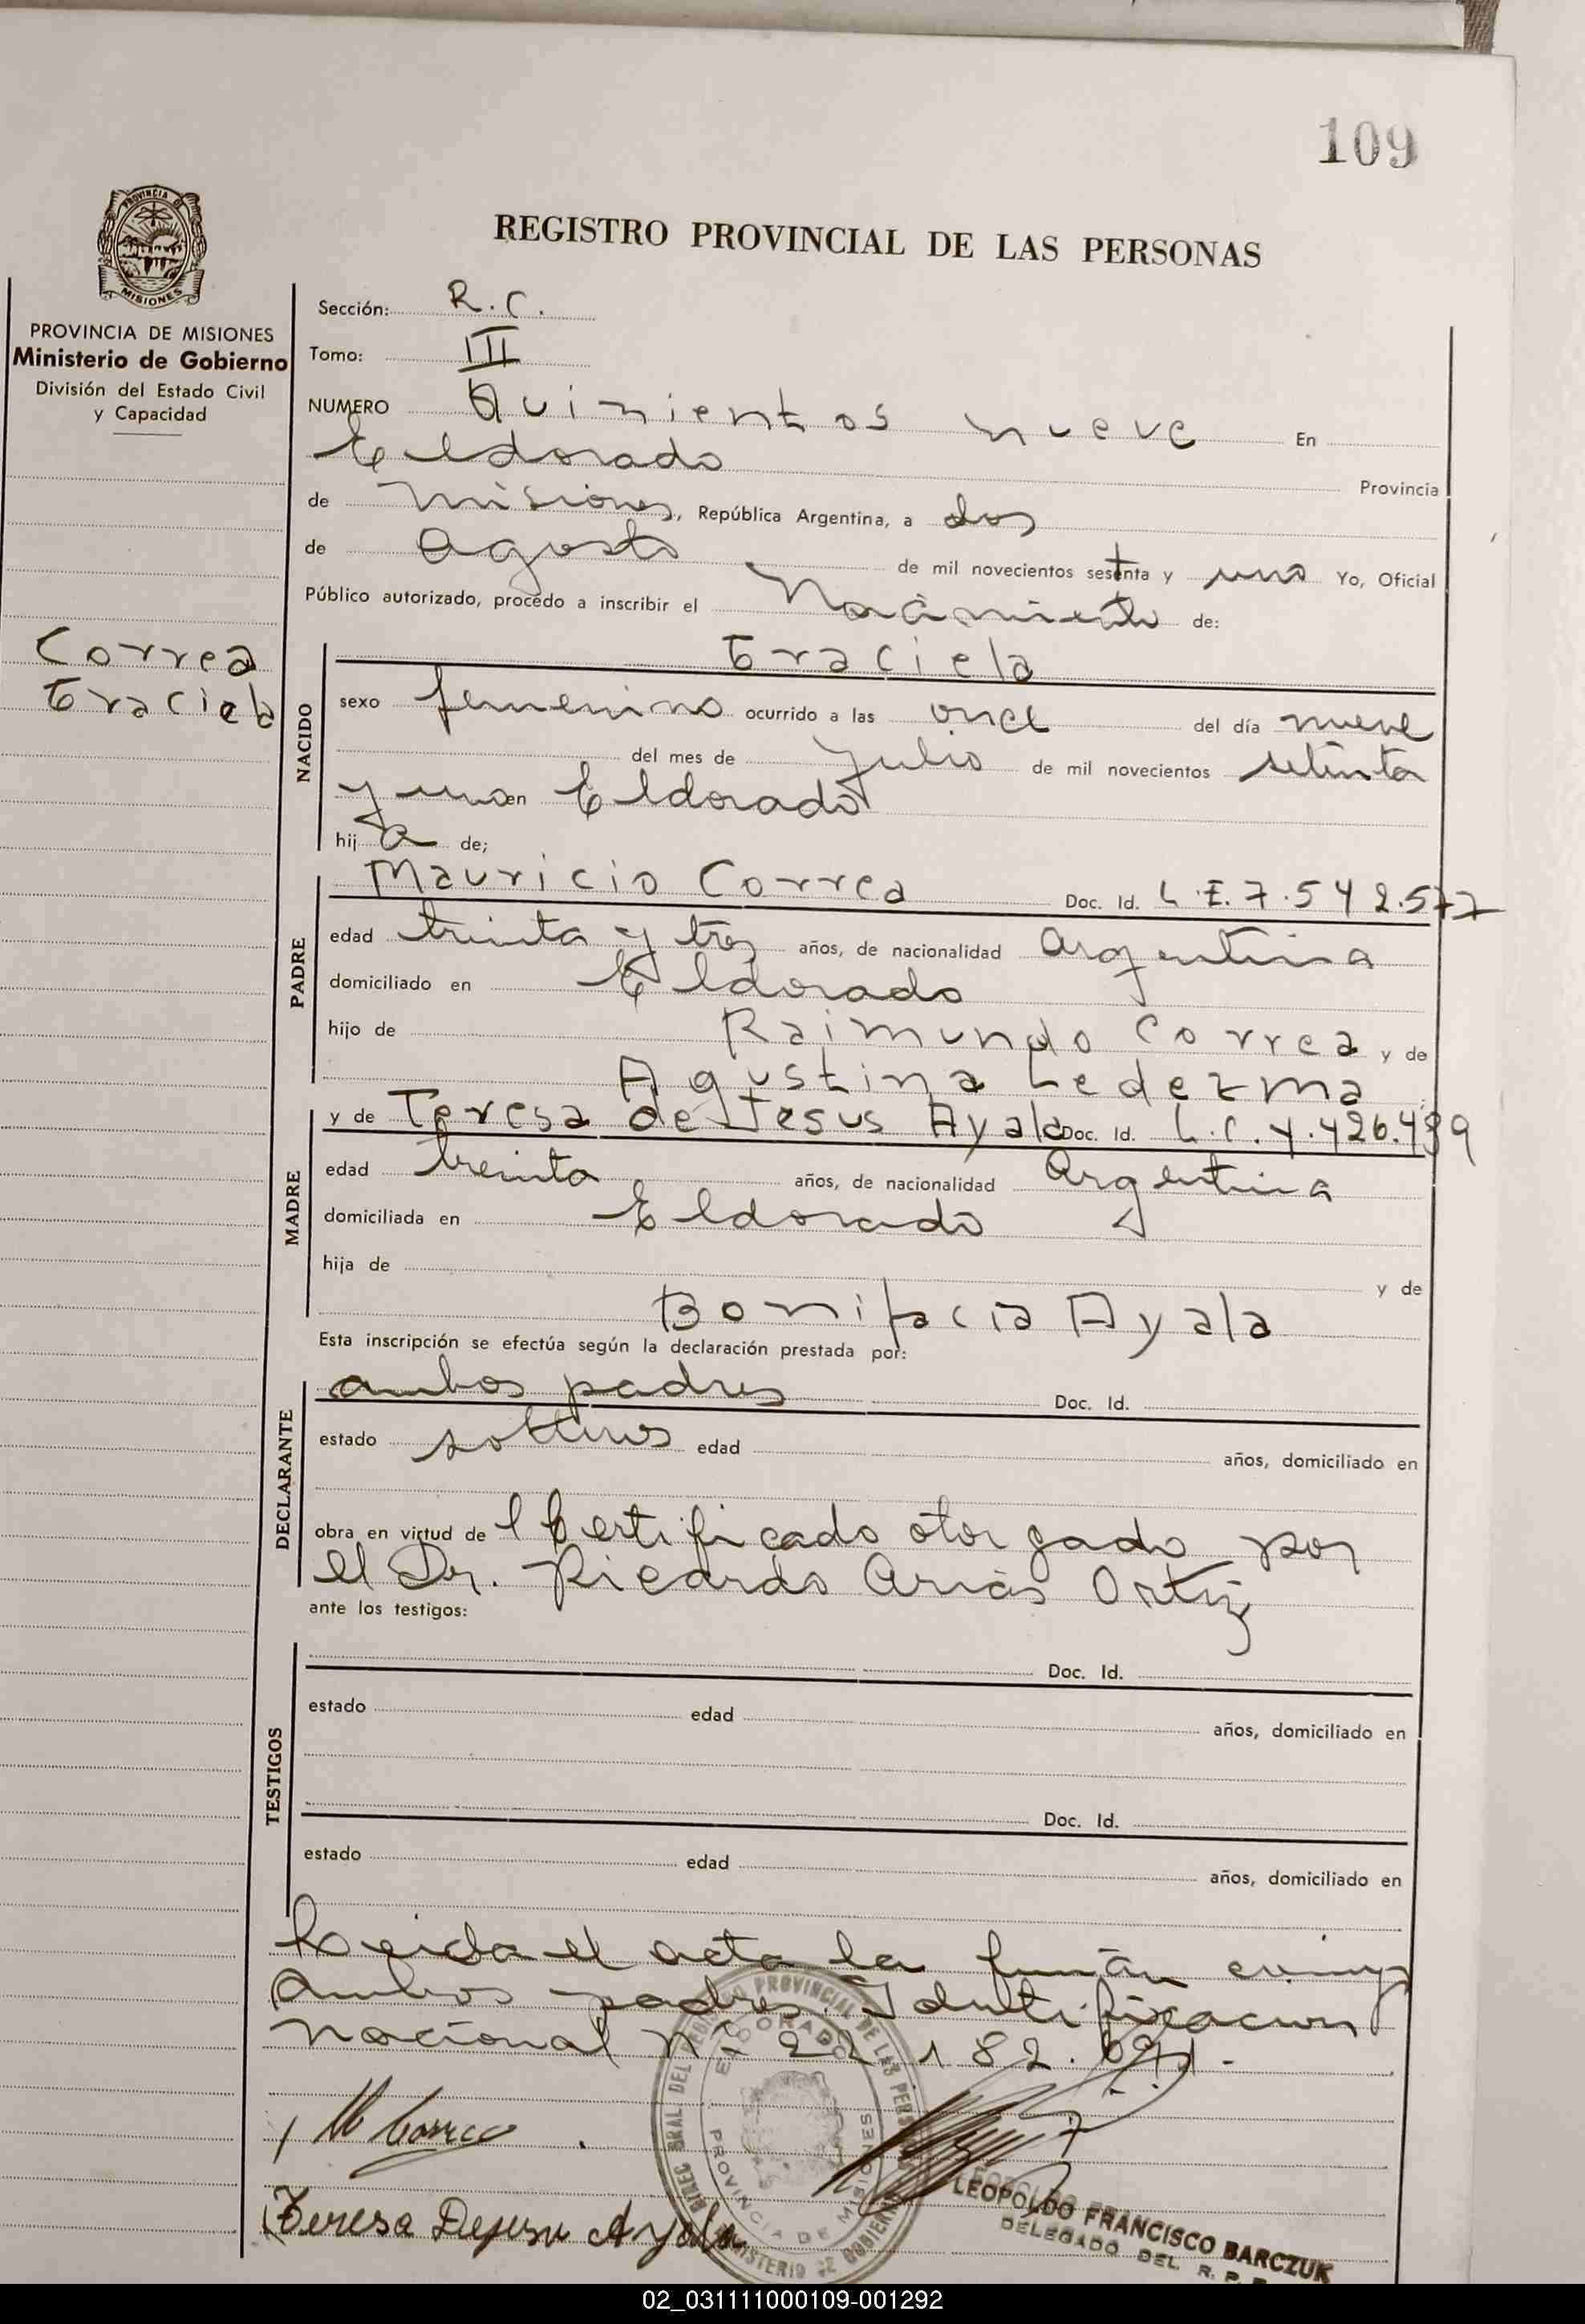 109
REGISTRO PROVINCIAL DE LAS PERSONAS
PROVINCIA DE MISIONES
Ministerio de Gobierno
División del Estado Civil
y Capacidad
Correa
Graciela
Sección: R.C.
Tomo: III
NUMERO Quinientos nueve En
Eldorado Provincia
de Misiones, República Argentina, a dos
de agosto de mil novecientos setenta y uno Yo, Oficial
Público autorizado, procedo a inscribir el Nacimiento de:
NACIDO
Graciela
sexo femenino ocurrido a las once del día nueve
del mes de Julio de mil novecientos setenta
y uno en Eldorado
hij a de;
PADRE
Mauricio Correa Doc. Id. L.E. 7.542.577
edad treinta y tres años, de nacionalidad Argentina
domiciliado en Eldorado
hijo de Raimundo Correa y de
Agustina Ledezma
MADRE
y de Teresa de Jesus Ayala Doc. Id. L.C.
edad treinta años, de nacionalidad Argentina
domiciliada en Eldorado
hija de y de
Bonifacia Ayala
Esta inscripción se efectúa según la declaración prestada por:
DECLARANTE
ambos padres Doc. Id.
estado solteros edad años, domiciliado en
obra en virtud de l Certificado otorgado por
el Dr. Ricardo Arias Ortiz
ante los testigos:
TESTIGOS
Doc. Id.
estado edad años, domiciliado en
Doc. Id.
estado edad años, domiciliado en
Leida el acta la firman
ambos padres. Identificacion
nacional Nº 22.182.
M Correa
Teresa Dejesu Ayala
ELDORADO
PROVINCIA DE MISIONES
LEOPOLDO FRANCISCO BARCZUK
DELEGADO DEL R. P.
02_031111000109-001292